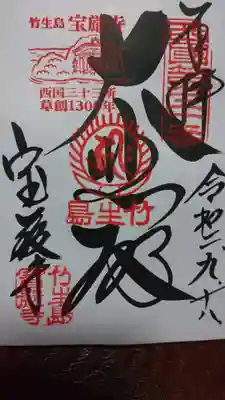 奉拝
竹生島 宝厳寺
西国三十三所
草創1300年
大悲殿
竹生島
宝厳寺
令和二、九、十八
竹生島
宝厳寺